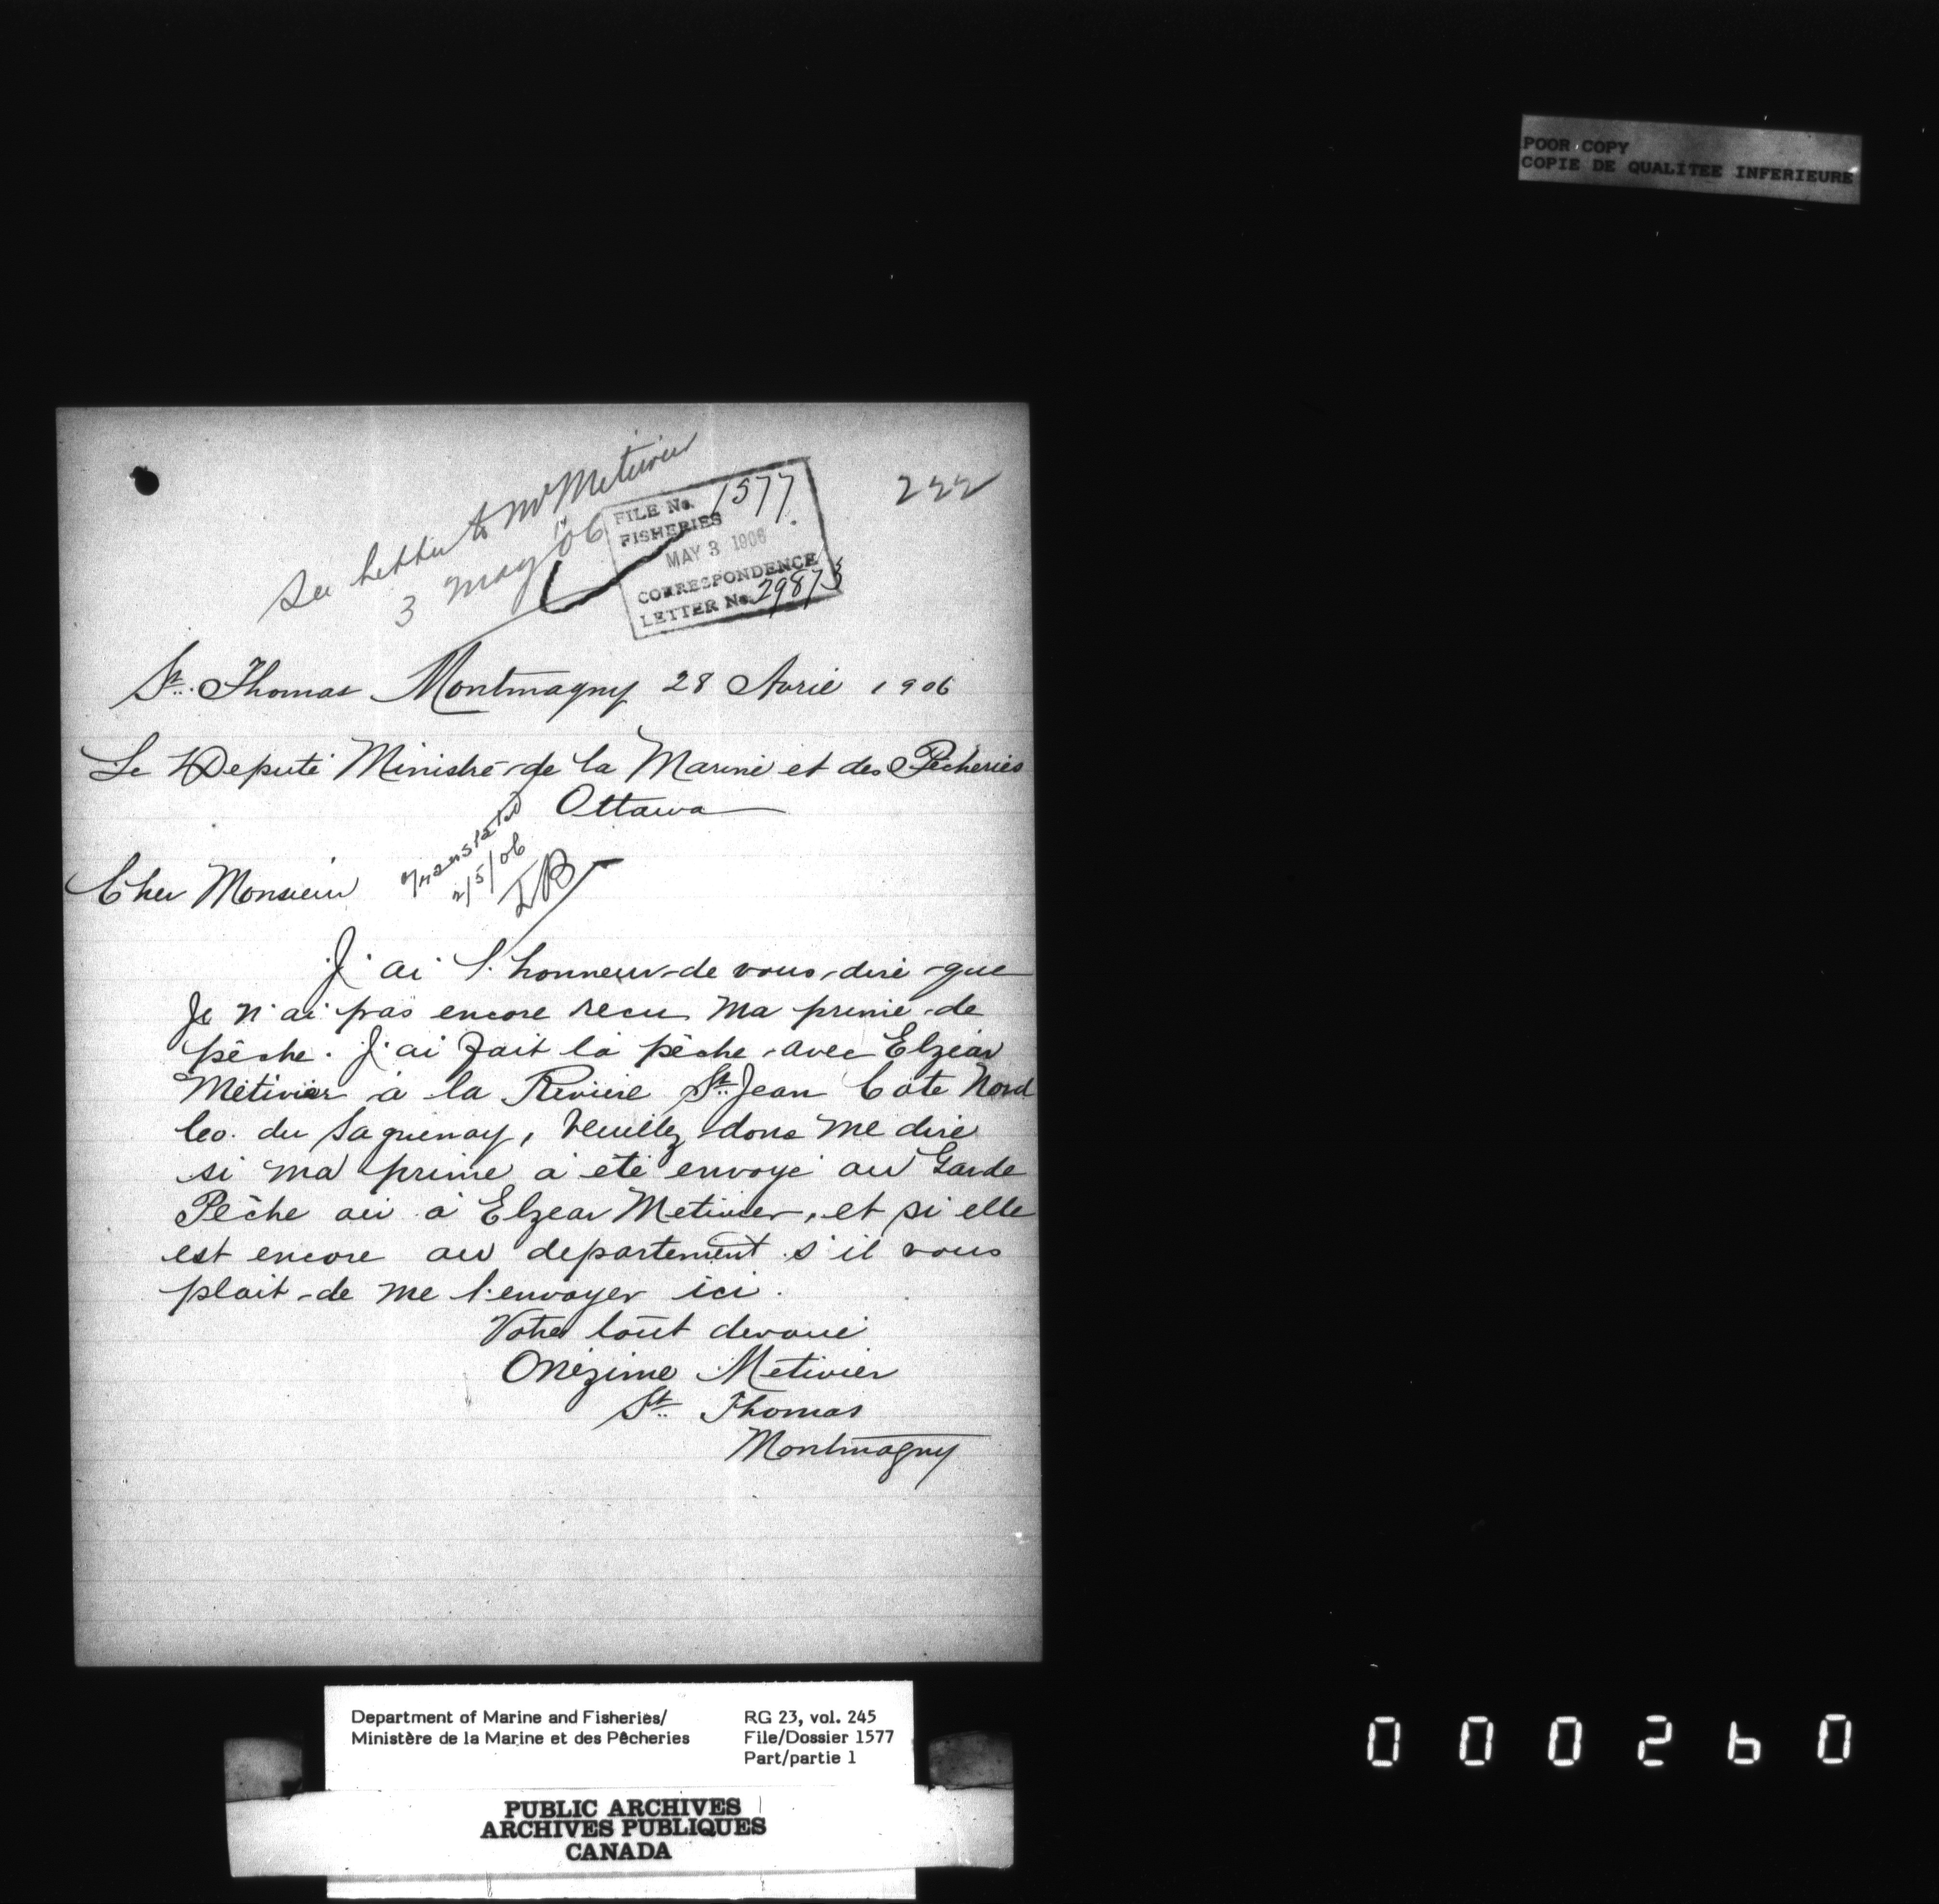 POOR COPY
COPIE DE QUALITEE INFERIEURE
See letter to Mr Metivier
3 May '06
FILE No. 1577
FISHERIES
MAY 3 1906
CORRESPONDENCE
LETTER No. 29873
222
St. Thomas Montmagny 28 Avril 1906
Le Deputé Ministre de la Marine et des Pêcheries
Ottawa
Translated
2/5/06
Cher Monsieur
J'ai l'honneur de vous dire que
Je n'ai pas encore recu ma prime de
pêche. J'ai fait la pêche avec Elzéar
Métivier à la Riviere St. Jean Cote Nord
Co. du Saguenay, Veuillez donc me dire
si ma prime a été envoyé au Garde
Pêche ou à Elzear Metivier, et si elle
est encore au departement s'il vous
plait de me l'envoyer ici.
Votre tout devoué
Onézime Metivier
St. Thomas
Montmagny
Department of Marine and Fisheries/
Ministère de la Marine et des Pêcheries
RG 23, vol. 245
File/Dossier 1577
Part/partie 1
PUBLIC ARCHIVES
ARCHIVES PUBLIQUES
CANADA
000260